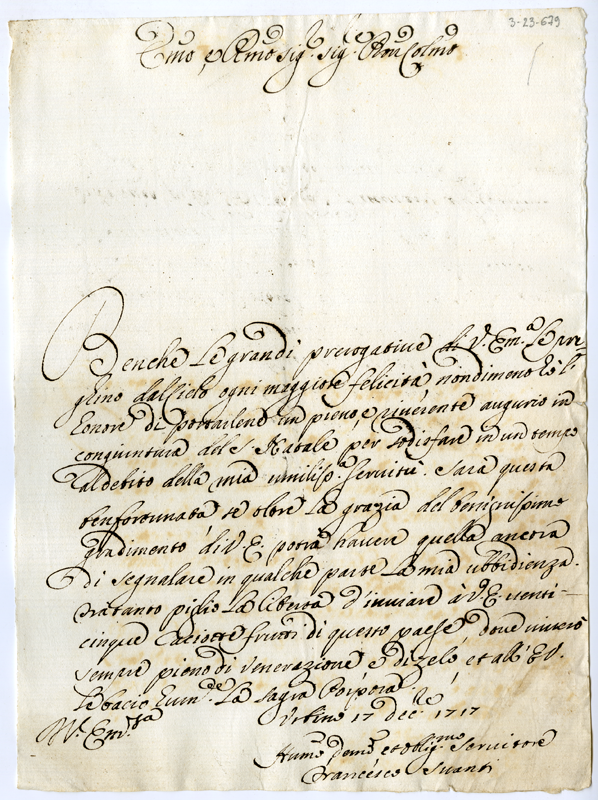 3-23-679
Emo e Rmo Sig.r Sig.r Pron Colmo
Benche le grandi prerogative di V. Em.a le pre=
ghino dal Cielo ogni maggiore felicità nondimeno hò l'
honore di portarlene un pieno, e riverente augurio in
congiuntura del S. Natale per sodisfare in un tempo
al debito della mia umiliss.a servitù. Sarà questa
ben fortunata, se oltre la grazia del benignissimo
gradimento di V. E. potrà havere quella ancora
di segnalare in qualche parte la mia ubbidienza.
Tratanto piglio la libertà d'inviare à V. E. venti=
cinque Caciotte frutti di questo paese, dove viverò
sempre pieno di venerazione e di zelo, et all' E. V.
le bacio hum.de la Sagra Porpora.
Urbino 17 Dec.re 1717
V. Em.za
Humo Devmo et oblig.mo Servitore
Francesco